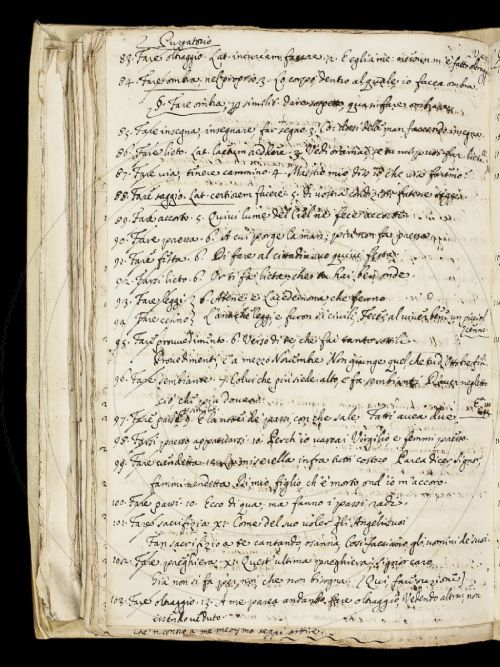 Purgatorio
83. Fare oltraggio. Lat. iniuriam facere. 2. E egli a me: nessun m'è fatto oltraggio
84. Fare ombra nel proprio. 3. Lo corpo dentro al quale io facea ombra
§. Fare ombra, p similit: dare sospetto,
85. Fare insegna, insegnare far segno 3. Coi dossi delle man faccendo insegna
86. Fare lieto. Lat. laetum reddere. 3. Vedi oramai se tu mi puoi far lieto
87. Fare via, tenere cammino. 4. Maestro mio diss'io che via faremo
88. Fare saggio. Lat. certiorem facere. 5. Di vostra condizion fatene saggi
89. Fare accorto. 5. Quivi lume del Ciel ne fece accorte
90. Fare pressa. 6. A cui porge la man; più non fa pressa
91. Fare festa 6. Di fare al cittadin suo quivi festa
92. Farsi lieto. 6. Or ti fa lieta, che tu hai ben onde
93. Fare leggi. 6. Atene e Lacedemona che fenno
L'antiche leggi e furon sì civili,
94. Fare cenno Feces al viver bene un picciol cenno
95. Far provvedimento. 6. Verso di te che fai tanto sottili
Provedimenti, c'a mezzo Novembre Non giunge quel che tu d'Ottobre fili
96. Fare sembiante. 7. Colui che più siede alto e fa sembianti D'aver negletto
ciò che far dovea
97. Fare passi 9. E la notte de' passi, con che sale Fatti avea due
98. Farsi presso appressarsi. 10. Perch'io varcai Virgilio e femmi presso
99. Fare vendetta. 10. La miserella infra tutti costoro Parea dicer, Signor,
fammi vendetta Di mio figlio, ch'è morto, ond'io m'accoro.
100. Fare passi. 10. Ecco di qua, ma fanno i passi radi
101. Fare sacrifizio. XI. Come del suo voler gli Angeli tuoi
Fan sacrificio a te cantando osanna, Così facciano gli uomini de' suoi
102. Fare preghiera. XI. Quest'ultima preghiera, Signor caro,
Già non si fa per noi, che non bisogna. (Qui fare orazione)
103. Fare oltraggio. 13. A me pareva andando fare oltraggio, Vedendo altrui, non
essendo veduto